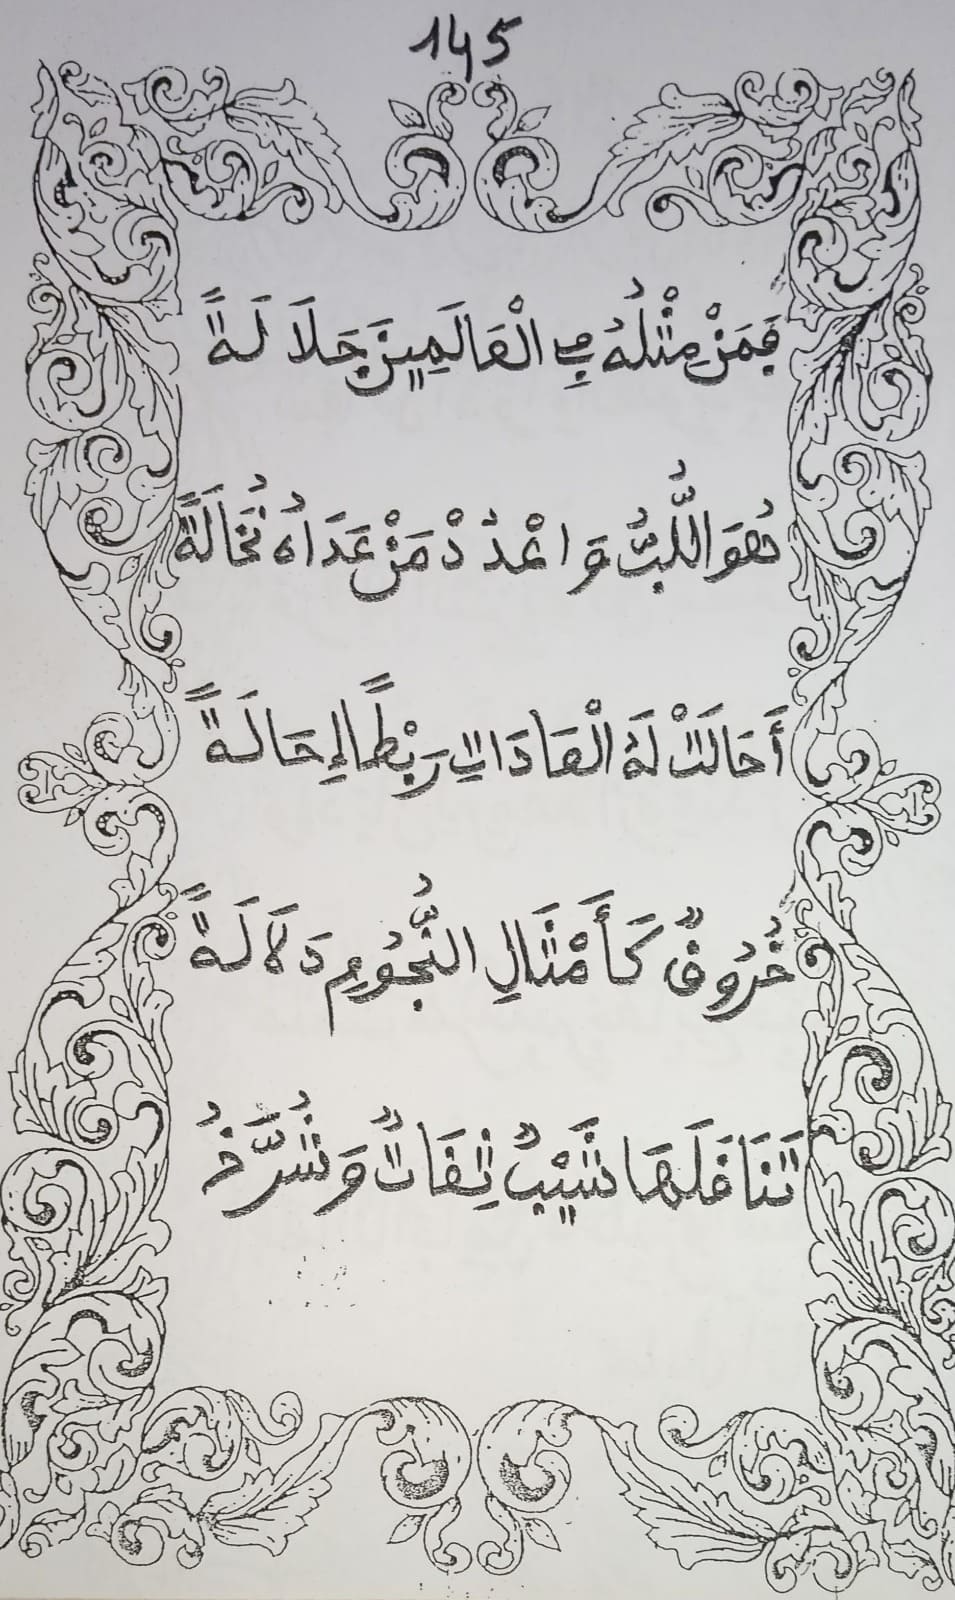 145
فَمَنْ مِثْلُهُ فِي الْعَالَمِينَ جَلَالَةً
هُوَ اللُّبُّ وَاعْدُدْ مَنْ عَدَاهُ نُخَالَةً
أَحَالَتْ لَهُ الْعَادَاتِ رَبْطًا إِحَالَةً
خُرُوقٌ كَأَمْثَالِ النُّجُومِ دَلَالَةً
تَنَاقَلَهَا شَيْبٌ ثِقَاتٌ وَشُرَّخُ